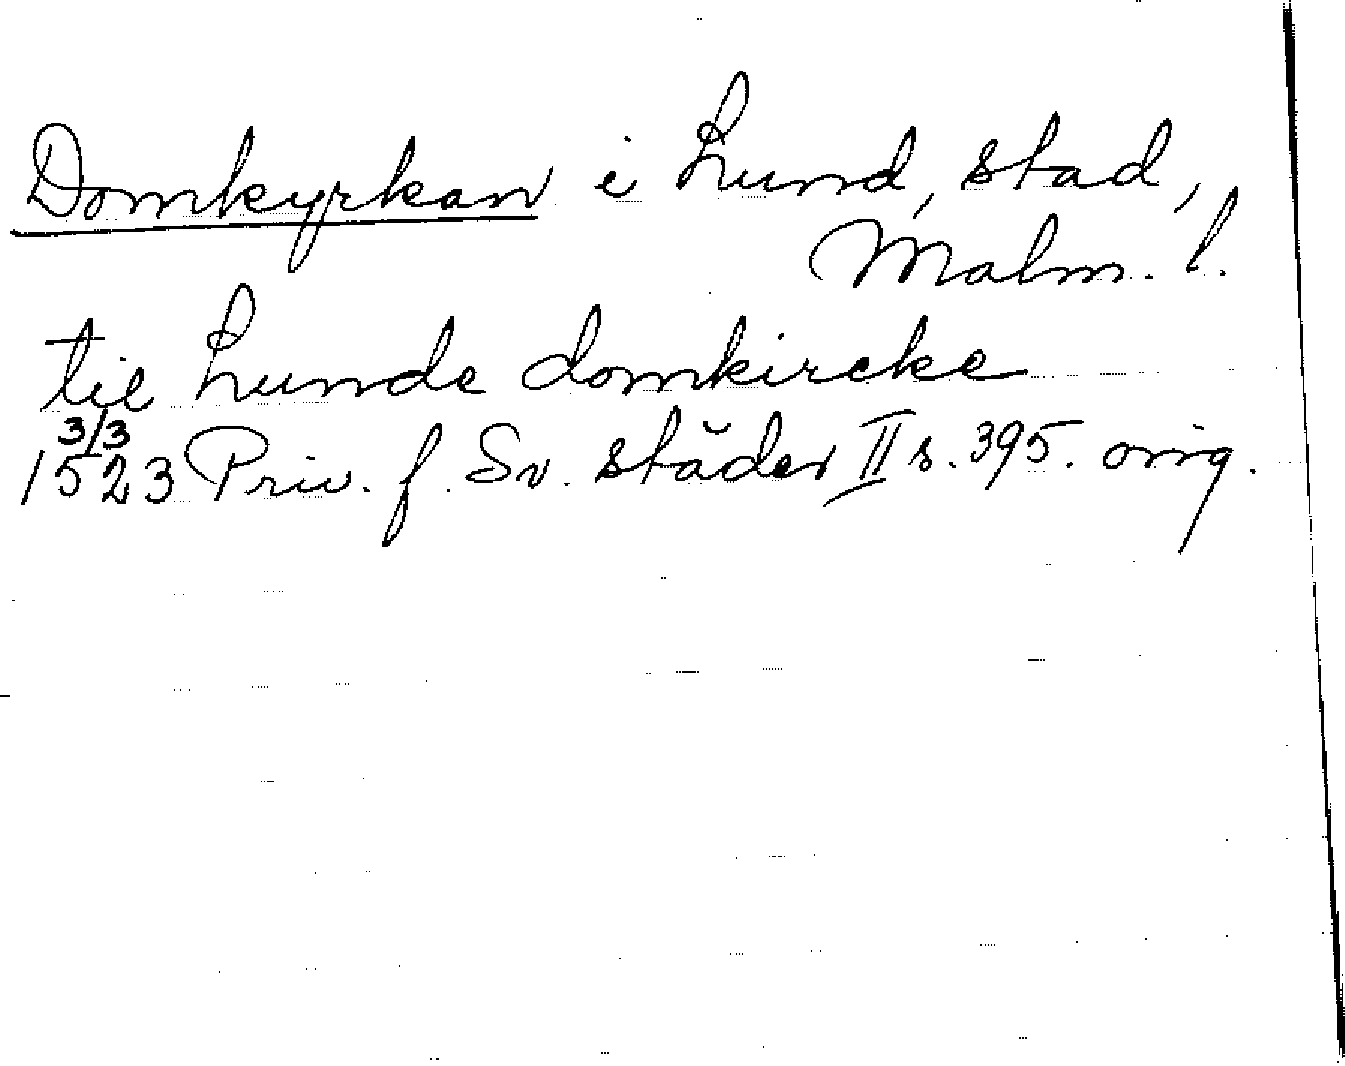 Domkyrkan i Lund, stad,
Malm. l.
til Lunde domkircke
3/3
1523 Priv. f. Sv. städer II s. 395. orig.